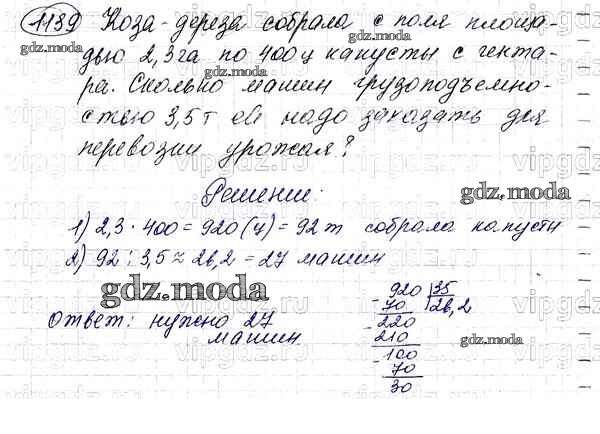 1139 Коза-дереза собрала с поля площа-
дью 2,3 га по 400 ц капусты с гекта-
ра. Сколько машин грузоподъемно-
стью 3,5 т ей надо заказать для
перевозки урожая?
Решение:
1) 2,3 · 400 = 920 (ц) = 92 т собрала капусты
2) 92 : 3,5 ≈ 26,2 = 27 машин
Ответ: нужно 27
машин
920 35
- 70 26,2
- 220
210
- 100
70
30
gdz.moda
gdz.moda
gdz.moda
gdz.moda
gdz.moda
gdz.moda
gdz.moda